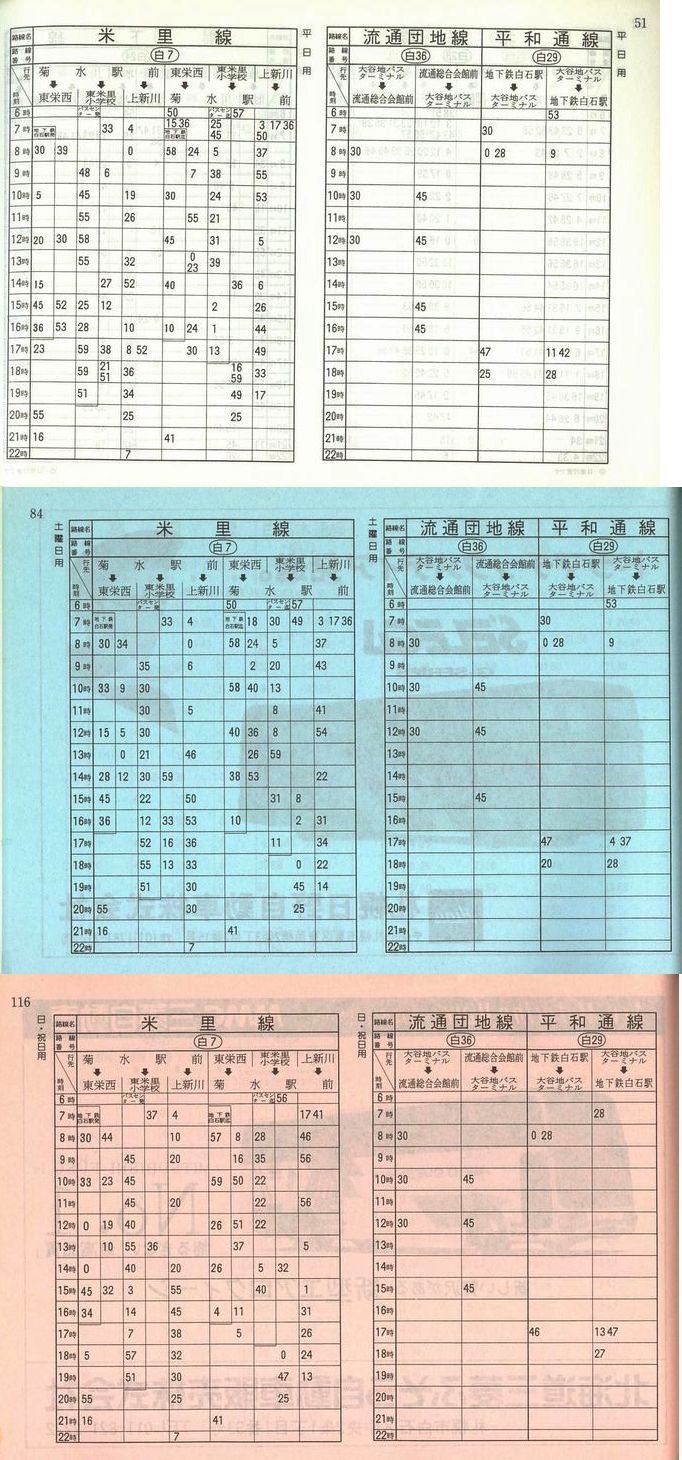 51
路線名 米里線
路線番号 白7
平日用
行先 時刻
菊水駅前 東栄西 東米里小学校 上新川
東栄西 東米里小学校 上新川 菊水駅前
6時 バスセンター発 50 バスセンター迄 57
7時 地下鉄白石駅発 33 4 15 36 地下鉄白石駅迄 25 45 3 17 36 50
8時 30 39 0 58 24 5 37
9時 48 6 7 38 55
10時 5 45 19 30 24 53
11時 55 26 55 21
12時 20 30 58 45 31 5
13時 55 32 0 23 39
14時 15 27 52 40 36 6
15時 45 52 25 12 2 26
16時 36 53 28 10 10 24 1 44
17時 23 59 38 8 52 30 13 49
18時 59 21 51 36 16 59 33
19時 51 34 49 17
20時 55 25 25
21時 16 41
22時 7
流通団地線 平和通線
白36 白29
平日用
大谷地バスターミナル 流通総合会館前 地下鉄白石駅 大谷地バスターミナル
流通総合会館前 大谷地バスターミナル 大谷地バスターミナル 地下鉄白石駅
53
30
30 0 28 9
30 45
30 45
45
45
47 11 42
25 28
84
土曜日用
路線名 米里線
路線番号 白7
行先 時刻
菊水駅前 東栄西 東米里小学校 上新川
東栄西 東米里小学校 上新川 菊水駅前
6時 バスセンター発 50 バスセンター迄 57
7時 地下鉄白石駅発 33 4 地下鉄白石駅迄 18 30 49 3 17 36
8時 30 34 0 58 24 5 37
9時 35 6 2 20 43
10時 33 9 30 58 40 13
11時 30 5 8 41
12時 15 5 30 40 36 8 54
13時 0 21 46 26 59
14時 28 12 30 59 38 53 22
15時 45 22 50 31 8
16時 36 12 33 53 10 2 31
17時 52 16 36 11 34
18時 55 13 33 0 22
19時 51 30 45 14
20時 55 30 25
21時 16 41
22時 7
土曜日用
路線名 流通団地線 平和通線
路線番号 白36 白29
行先 時刻
大谷地バスターミナル 流通総合会館前 地下鉄白石駅 大谷地バスターミナル
流通総合会館前 大谷地バスターミナル 大谷地バスターミナル 地下鉄白石駅
6時 53
7時 30
8時 30 0 28 9
9時
10時 30 45
11時
12時 30 45
13時
14時
15時 45
16時
17時 47 4 37
18時 20 28
19時
20時
21時
22時
116
日・祝日用
路線名 米里線
路線番号 白7
行先 時刻
菊水駅前 東栄西 東米里小学校 上新川
東栄西 東米里小学校 上新川 菊水駅前
6時 バスセンター発 バスセンター迄 56
7時 地下鉄白石駅発 37 4 地下鉄白石駅迄 17 41
8時 30 44 10 57 8 28 46
9時 45 20 16 35 56
10時 33 23 45 59 50 22
11時 45 20 22 56
12時 0 19 40 26 51 22
13時 10 55 36 37 5
14時 0 40 20 26 5 32
15時 45 32 3 55 40 1
16時 34 14 45 4 11 31
17時 7 38 5 26
18時 5 57 32 0 24
19時 51 30 47 13
20時 55 25 25
21時 16 41
22時 7
日・祝日用
路線名 流通団地線 平和通線
路線番号 白36 白29
行先 時刻
大谷地バスターミナル 流通総合会館前 地下鉄白石駅 大谷地バスターミナル
流通総合会館前 大谷地バスターミナル 大谷地バスターミナル 地下鉄白石駅
6時
7時 28
8時 30 0 28
9時
10時 30 45
11時
12時 30 45
13時
14時
15時 45
16時
17時 46 13 47
18時 27
19時
20時
21時
22時